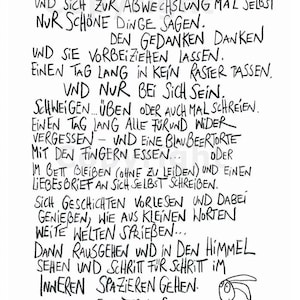 UND SICH ZUR ABWECHSLUNG MAL SELBST
NUR SCHÖNE DINGE SAGEN.
DEN GEDANKEN DANKEN
UND SIE VORBEIZIEHEN LASSEN.
EINEN TAG LANG IN KEIN RASTER PASSEN.
UND NUR BEI SICH SEIN.
SCHWEIGEN... ÜBEN ODER AUCH MAL SCHREIEN.
EINEN TAG LANG ALLE FÜR UND WIDER
VERGESSEN – UND EINE BLAUBEERTORTE
MIT DEN FINGERN ESSEN. ODER
IM BETT BLEIBEN (OHNE ZU LEIDEN) UND EINEN
LIEBESBRIEF AN SICH SELBST SCHREIBEN.
SICH GESCHICHTEN VORLESEN UND DABEI
GENIEßEN, WIE AUS KLEINEN WORTEN
WEITE WELTEN SPRIEßEN...
DANN RAUSGEHEN UND IN DEN HIMMEL
SEHEN UND SCHRITT FÜR SCHRITT IM
INNEREN SPAZIEREN GEHEN.